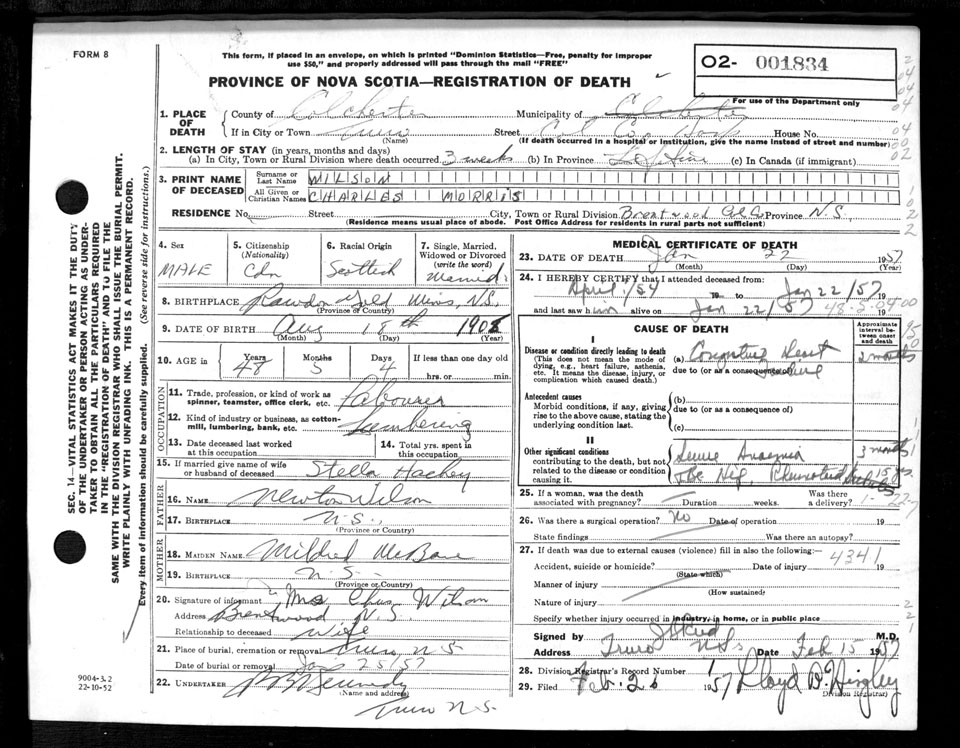 FORM 8
This form, if placed in an envelope, on which is printed "Dominion Statistics—Free, penalty for improper
use $50," and properly addressed will pass through the mail "FREE"
PROVINCE OF NOVA SCOTIA—REGISTRATION OF DEATH
02- 001834
For use of the Department only
1. PLACE OF DEATH
County of Colchester Municipality of Colchester
If in City or Town Truro Street Col Co Hosp House No.
(Name) (If death occurred in a hospital or institution, give the name instead of street and number)
2. LENGTH OF STAY (in years, months and days)
(a) In City, Town or Rural Division where death occurred 3 weeks (b) In Province Life time (c) In Canada (if immigrant)
3. PRINT NAME OF DECEASED
Surname or Last Name WILSON
All Given or Christian Names CHARLES MORRIS
RESIDENCE No. Street City, Town or Rural Division Brentwood Col Co Province N.S.
(Residence means usual place of abode. Post Office Address for residents in rural parts not sufficient)
4. Sex
MALE
5. Citizenship (Nationality)
Cdn
6. Racial Origin
Scottish
7. Single, Married, Widowed or Divorced (write the word)
Married
8. BIRTHPLACE Rawdon Gold Mines, N.S.
(Province or Country)
9. DATE OF BIRTH Aug 18th 1908
(Month) (Day) (Year)
10. AGE in Years Months Days If less than one day old
48 5 4 hrs. or min.
OCCUPATION
11. Trade, profession, or kind of work as spinner, teamster, office clerk, etc. Labourer
12. Kind of industry or business, as cotton-mill, lumbering, bank, etc. Lumbering
13. Date deceased last worked at this occupation
14. Total yrs. spent in this occupation
15. If married give name of wife or husband of deceased Stella Hackey
FATHER
16. NAME Newton Wilson
17. BIRTHPLACE N.S.,
(Province or Country)
MOTHER
18. MAIDEN NAME Mildred
19. BIRTHPLACE N.S.
(Province or Country)
20. Signature of informant Mrs Chas Wilson
Address Brentwood N.S.
Relationship to deceased Wife
21. Place of burial, cremation or removal Truro N.S
Date of burial or removal Jan 25/57
22. UNDERTAKER
(Name and address)
Truro N.S.
MEDICAL CERTIFICATE OF DEATH
23. DATE OF DEATH Jan 22 1957
(Month) (Day) (Year)
24. I HEREBY CERTIFY that I attended deceased from
April/54 19 to Jan 22/57 19
and last saw him alive on Jan 22/57 19
CAUSE OF DEATH
Approximate interval between onset and death
I
Disease or condition directly leading to death (a) Congestive Heart Failure 2 months
(This does not mean the mode of dying, e.g., heart failure, asthenia, etc. It means the disease, injury, or complication which caused death.)
due to (or as a consequence of)
Antecedent causes
Morbid conditions, if any, giving rise to the above cause, stating the underlying condition last.
(b)
due to (or as a consequence of)
(c)
II
Other significant conditions contributing to the death, but not related to the disease or condition causing it.
Anaemia 3 months
25. If a woman, was the death associated with pregnancy? Duration weeks. Was there a delivery?
26. Was there a surgical operation? No Date of operation 19
State findings Was there an autopsy?
27. If death was due to external causes (violence) fill in also the following:— 4341
Accident, suicide or homicide? Date of injury 19
(State which)
Manner of injury
(How sustained)
Nature of injury
Specify whether injury occurred in industry, in home, or in public place
Signed by M.D.
Address Truro NS Date Feb 15 1957
28. Division Registrar's Record Number
29. Filed Feb. 26 1957 Lloyd D. Hingley
(Division Registrar)
SEC. 14—VITAL STATISTICS ACT MAKES IT THE DUTY
OF THE UNDERTAKER OR PERSON ACTING AS UNDER-
TAKER TO OBTAIN ALL THE PARTICULARS REQUIRED
IN THE "REGISTRATION OF DEATH" AND TO FILE THE
SAME WITH THE DIVISION REGISTRAR WHO SHALL ISSUE THE BURIAL PERMIT.
WRITE PLAINLY WITH UNFADING INK. THIS IS A PERMANENT RECORD.
Every item of information should be carefully supplied. (See reverse side for instructions.)
9004-3.2
22-10-52